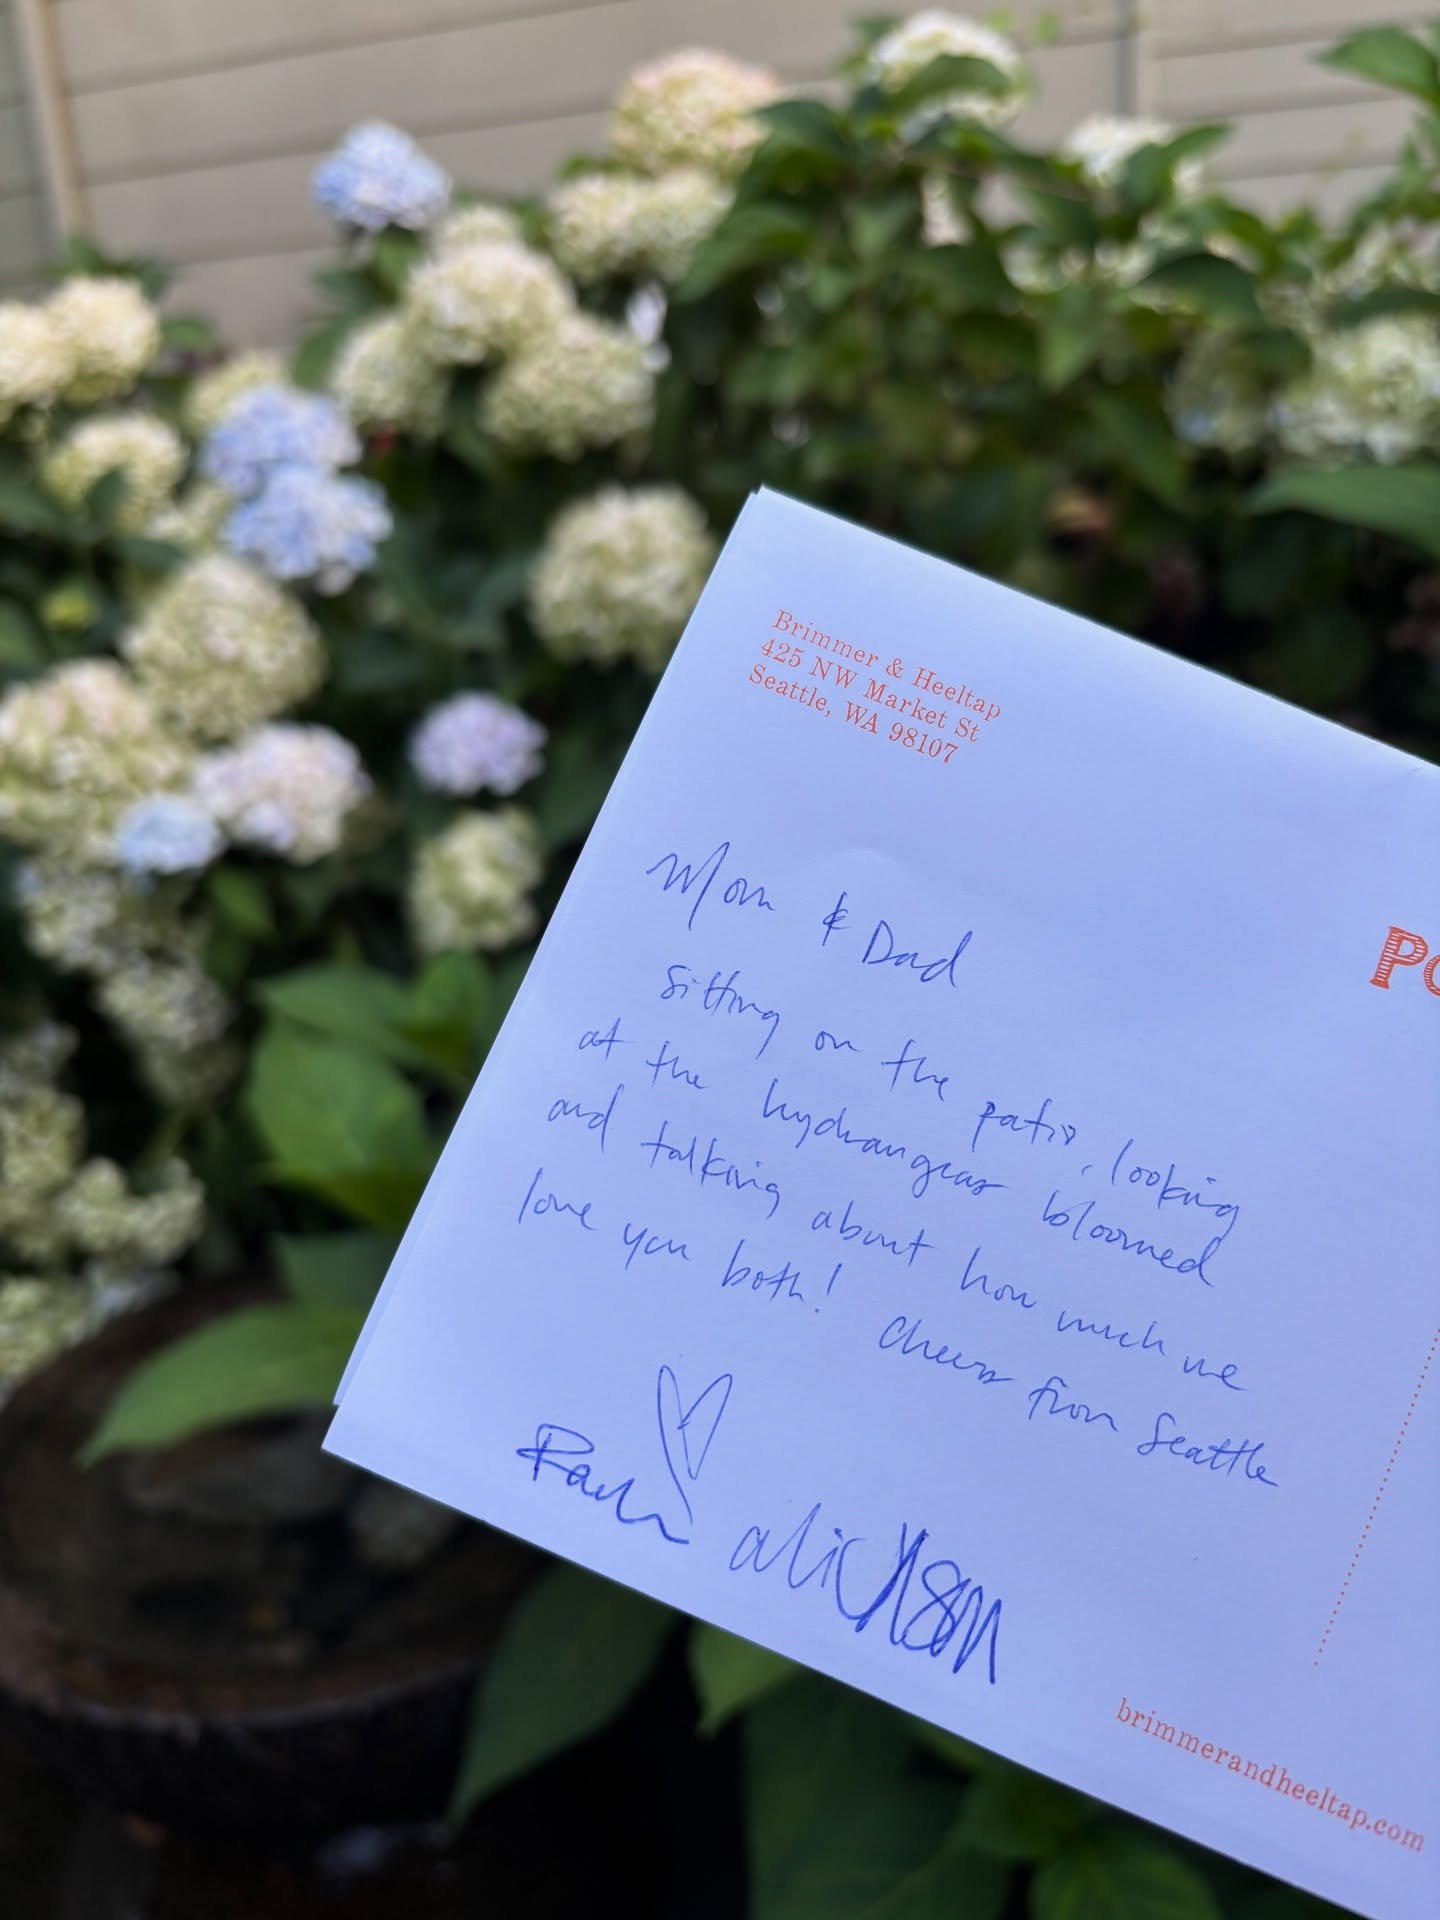 Brimmer & Heeltap
425 NW Market St
Seattle, WA 98107
Mom & Dad
Sitting on the patio, looking
at the hydrangeas bloomed
and talking about how much we
love you both! Cheers from Seattle
brimmerandheeltap.com